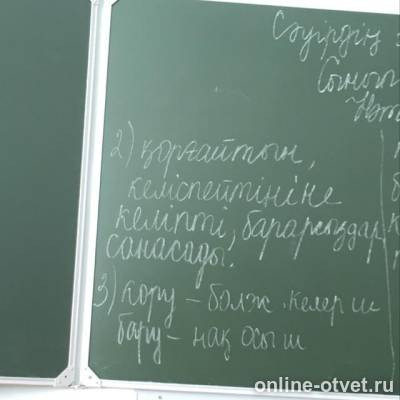 Сәуірдің
Сынып
2) қорғайтын,
келіспейтініне
келіпті, барарсыздар,
санасады.
3) кору – болж. келер ш
бару – нақ осы ш
online-otvet.ru